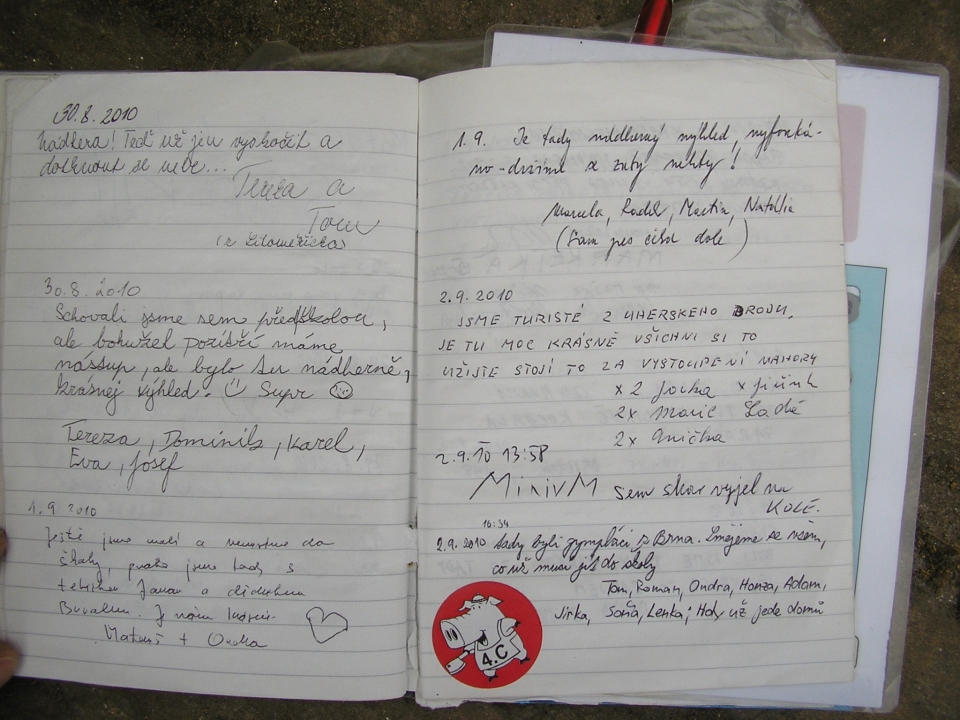 30.8.2010
Nádhera! Teď už jen vyskočit a
dotknout se nebe...
Tereza a
Tom
(z Litoměřicka)
30.8.2010
Schovali jsme sem před školou,
ale bohužel pozítří máme
nástup, ale bylo tu nádherně,
krásnej výhled. Supr
Tereza, Dominik, Karel,
Eva, Josef
1.9.2010
Ještě jsme malí a nemusíme do
školy, proto jsme tady s
a dědou
Matouš +
1.9. Je tady nádherný výhled,
a zutý nehty!
Marcela, Radek, Martin, Natálie
(Sam pes čeká dole)
2.9.2010
JSME TURISTÉ Z UHERSKEHO BRODU.
JE TU MOC KRÁSNĚ VŠICHNI SI TO
UŽIJTE STOJÍ TO ZA VYSTOUPENÍ NAHORU
x 2 Jarka x Jiřink
2x Marie Ladě
2x Anička
2.9.10 13:58
MinivM sem skor vyjel na
KOLE.
16:34
2.9.2010 tady byli gympláci z Brna. Smějeme se všem,
co už musí jít do školy
Tom, Roman, Ondra, Honza, Adam,
Jirka, Soňa, Lenka; už jede domů
4.C